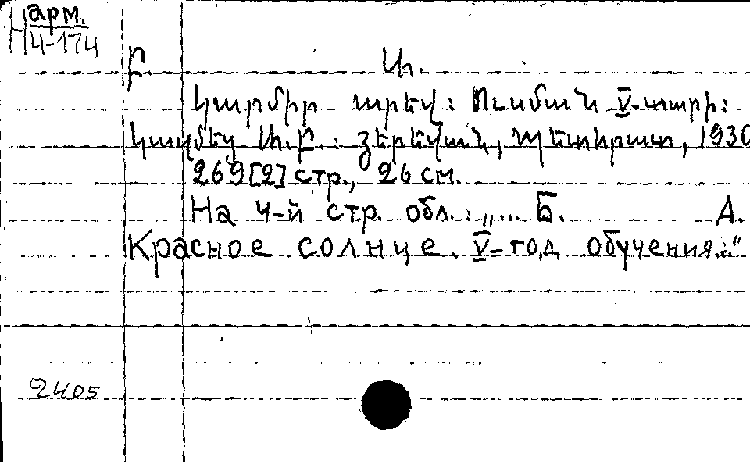 Нарм.
4-174
Բ. Ա.
Կարմիր արեվ: Ուսման V-տարի:
Կազմեց Ա.Բ.: Յերեվան, Պետհրատ, 1930
269[2] стр., 26 см.
На 4-й стр. обл.: „... Б. А.
Красное солнце. V-год обучения..."
2405